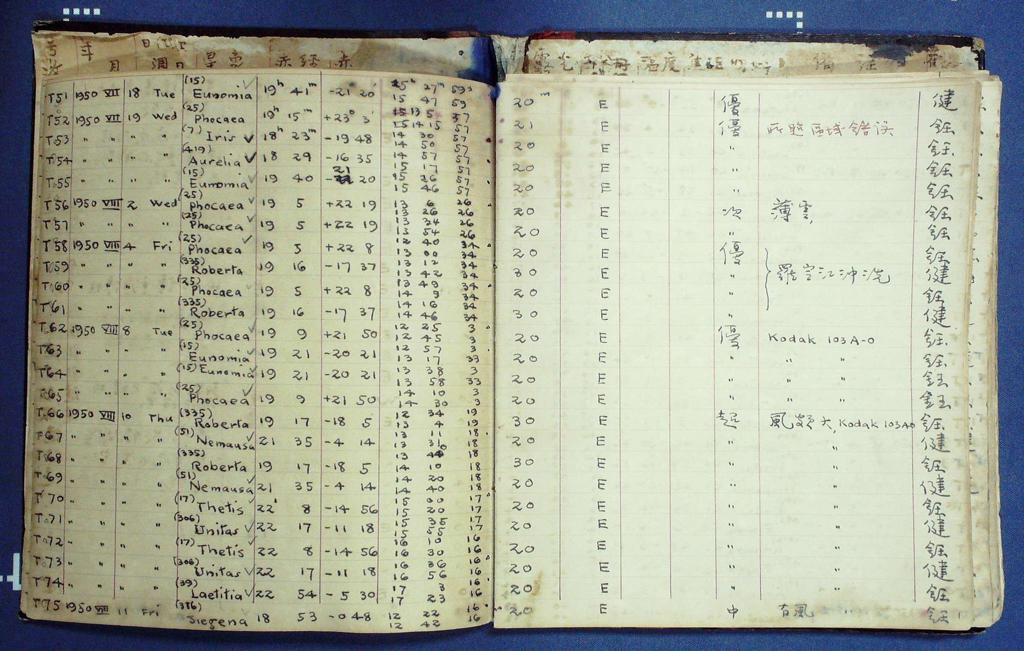 年 月 日 週日
T51 1950 VII 18 Tue (15) Eunomia ✓ 19h 41m -21 20 15h 27m 59s 15 47 59 20m E 優 健
T52 1950 VII 19 Wed (25) Phocaea 19h 15m +23 3 57 21 E 優 区域錯誤 鈺
T53 " " " (7) Iris ✓ 18h 23m -19 48 14 30 57 14 50 57 20 E " 鈺
T54 " " " (419) Aurelia ✓ 18 29 -16 35 14 57 57 15 17 57 20 E " 鈺
T55 " " " (15) Eunomia 19 40 -21 20 15 26 57 15 46 57 20 E " 鈺
T56 1950 VIII 2 Wed (25) Phocaea ✓ 19 5 +22 19 13 6 26 13 26 26 20 E 次 薄雲 鈺
T57 " " " (25) Phocaea ✓ 19 5 +22 19 13 34 26 13 54 26 20 E " 鈺
T58 1950 VIII 4 Fri (25) Phocaea ✓ 19 5 +22 8 12 40 34 13 00 34 20 E 優 鈺
T59 " " " (335) Roberta 19 16 -17 37 13 12 34 13 42 34 30 E " 羅定江冲洗 健
T60 " " " (25) Phocaea ✓ 19 5 +22 8 13 49 34 14 9 34 20 E " 鈺
T61 " " " (335) Roberta 19 16 -17 37 14 16 34 14 46 34 30 E " 健
T62 1950 VIII 8 Tue (25) Phocaea ✓ 19 9 +21 50 12 25 3 12 45 3 20 E 優 Kodak 103A-0 鈺
T63 " " " (15) Eunomia ✓ 19 21 -20 21 12 57 3 13 17 33 20 E " " " 鈺
T64 " " " (15) Eunomia ✓ 19 21 -20 21 13 38 3 13 58 33 20 E " " " 鈺
T65 " " " (25) Phocaea ✓ 19 9 +21 50 14 10 3 14 30 3 20 E " " " 鈺
T66 1950 VIII 10 Thu (335) Roberta ✓ 19 17 -18 5 12 34 19 13 4 19 30 E 超 風 大, Kodak 103A0 鈺
T67 " " " (51) Nemausa ✓ 21 35 -4 14 13 11 18 13 31 18 20 E " " 健
T68 " " " (335) Roberta 19 17 -18 5 13 40 18 14 10 18 30 E " " 鈺
T69 " " " (51) Nemausa ✓ 21 35 -4 14 14 20 18 14 40 18 20 E " " 健
T70 " " " (17) Thetis ✓ 22 8 -14 56 15 00 17 15 20 17 20 E " " 鈺
T71 " " " (306) Unitas ✓ 22 17 -11 18 15 35 17 15 55 17 20 E " " 健
T72 " " " (17) Thetis ✓ 22 8 -14 56 16 10 16 16 30 16 20 E " " 鈺
T73 " " " (306) Unitas ✓ 22 17 -11 18 16 36 16 16 56 16 20 E " " 健
T74 " " " (39) Laetitia ✓ 22 54 -5 30 17 3 16 17 23 16 20 E " " 鈺
T75 1950 VIII 11 Fri (386) Siegena 18 53 -0 48 12 22 16 12 42 16 20 E 中 有風 " 鈺